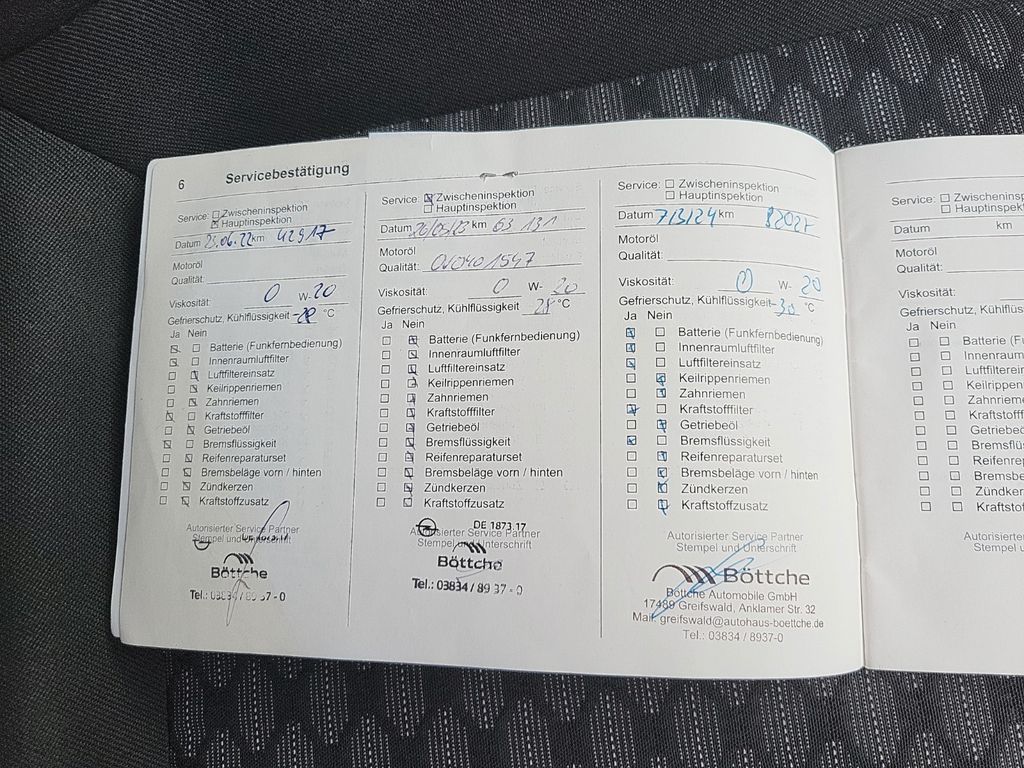 6 Servicebestätigung
Service: Zwischeninspektion
Hauptinspektion
Datum 23.06.22 km 42917
Motoröl
Qualität:
Viskosität: 0 W- 20
Gefrierschutz, Kühlflüssigkeit -28 °C
Ja Nein
Batterie (Funkfernbedienung)
Innenraumluftfilter
Luftfiltereinsatz
Keilrippenriemen
Zahnriemen
Kraftstofffilter
Getriebeöl
Bremsflüssigkeit
Reifenreparaturset
Bremsbeläge vorn / hinten
Zündkerzen
Kraftstoffzusatz
Autorisierter Service Partner
Stempel und Unterschrift
Böttche
Tel.: 03834 / 89 37 - 0
Service: Zwischeninspektion
Hauptinspektion
Datum 26/05/23 km 63 131
Motoröl
Qualität: OV0401547
Viskosität: 0 W- 20
Gefrierschutz, Kühlflüssigkeit 28 °C
Ja Nein
Batterie (Funkfernbedienung)
Innenraumluftfilter
Luftfiltereinsatz
Keilrippenriemen
Zahnriemen
Kraftstofffilter
Getriebeöl
Bremsflüssigkeit
Reifenreparaturset
Bremsbeläge vorn / hinten
Zündkerzen
Kraftstoffzusatz
DE 1873.17
Autorisierter Service Partner
Stempel und Unterschrift
Böttche
Tel.: 03834 / 89 37 - 0
Service: Zwischeninspektion
Hauptinspektion
Datum 7/3/24 km 82027
Motoröl
Qualität:
Viskosität: 0 W- 20
Gefrierschutz, Kühlflüssigkeit -30 °C
Ja Nein
Batterie (Funkfernbedienung)
Innenraumluftfilter
Luftfiltereinsatz
Keilrippenriemen
Zahnriemen
Kraftstofffilter
Getriebeöl
Bremsflüssigkeit
Reifenreparaturset
Bremsbeläge vorn / hinten
Zündkerzen
Kraftstoffzusatz
Autorisierter Service Partner
Stempel und Unterschrift
Böttche
Böttche Automobile GmbH
17489 Greifswald, Anklamer Str. 32
Mail: greifswald@autohaus-boettche.de
Tel.: 03834 / 8937-0
Service: Zwischeninsp
Hauptinspek
Datum km
Motoröl
Qualität:
Viskosität:
Gefrierschutz, Kühlflüs
Ja Nein
Batterie (F
Innenraum
Luftfilterein
Keilrippen
Zahnrieme
Kraftstofff
Getriebeö
Bremsflü
Reifenre
Bremsbe
Zündker
Kraftsto
Autorisierte
Stempel u